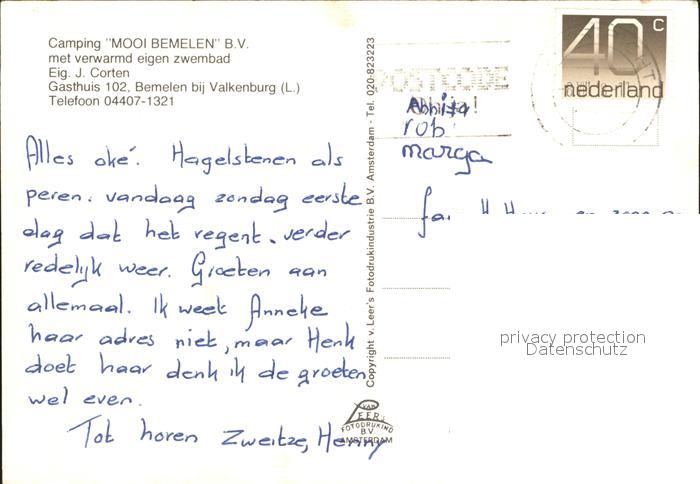 Camping "MOOI BEMELEN" B.V.
met verwarmd eigen zwembad
Eig. J. Corten
Gasthuis 102, Bemelen bij Valkenburg (L.)
Telefoon 04407-1321
Alles oké. Hagelstenen als
peren. vandaag zondag eerste
dag dat het regent. verder
redelijk weer. Groeten aan
allemaal. Ik weet Anneke
haar adres niet, maar Henk
doet haar denk ik de groeten
wel even.
Tot horen Zweitze, Henny
Copyright v. Leer's Fotodrukindustrie B.V. Amsterdam - Tel. 020-823223
VAN
LEER's
FOTODRUKIND
B.V.
AMSTERDAM
POSTCODE
40 c
nederland
rob
marga
fam.
privacy protection
Datenschutz